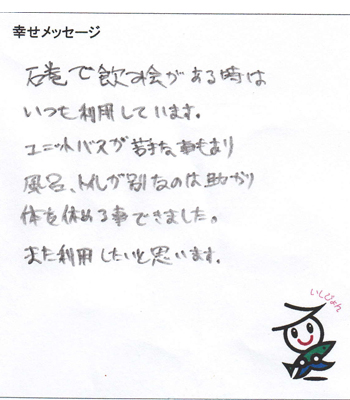 幸せメッセージ
石巻で飲み会がある時は
いつも利用しています。
ユニットバスが苦手な事もあり
風呂、トイレが別なのは助かり
体を休める事できました。
また利用したいと思います。
いしぴょん